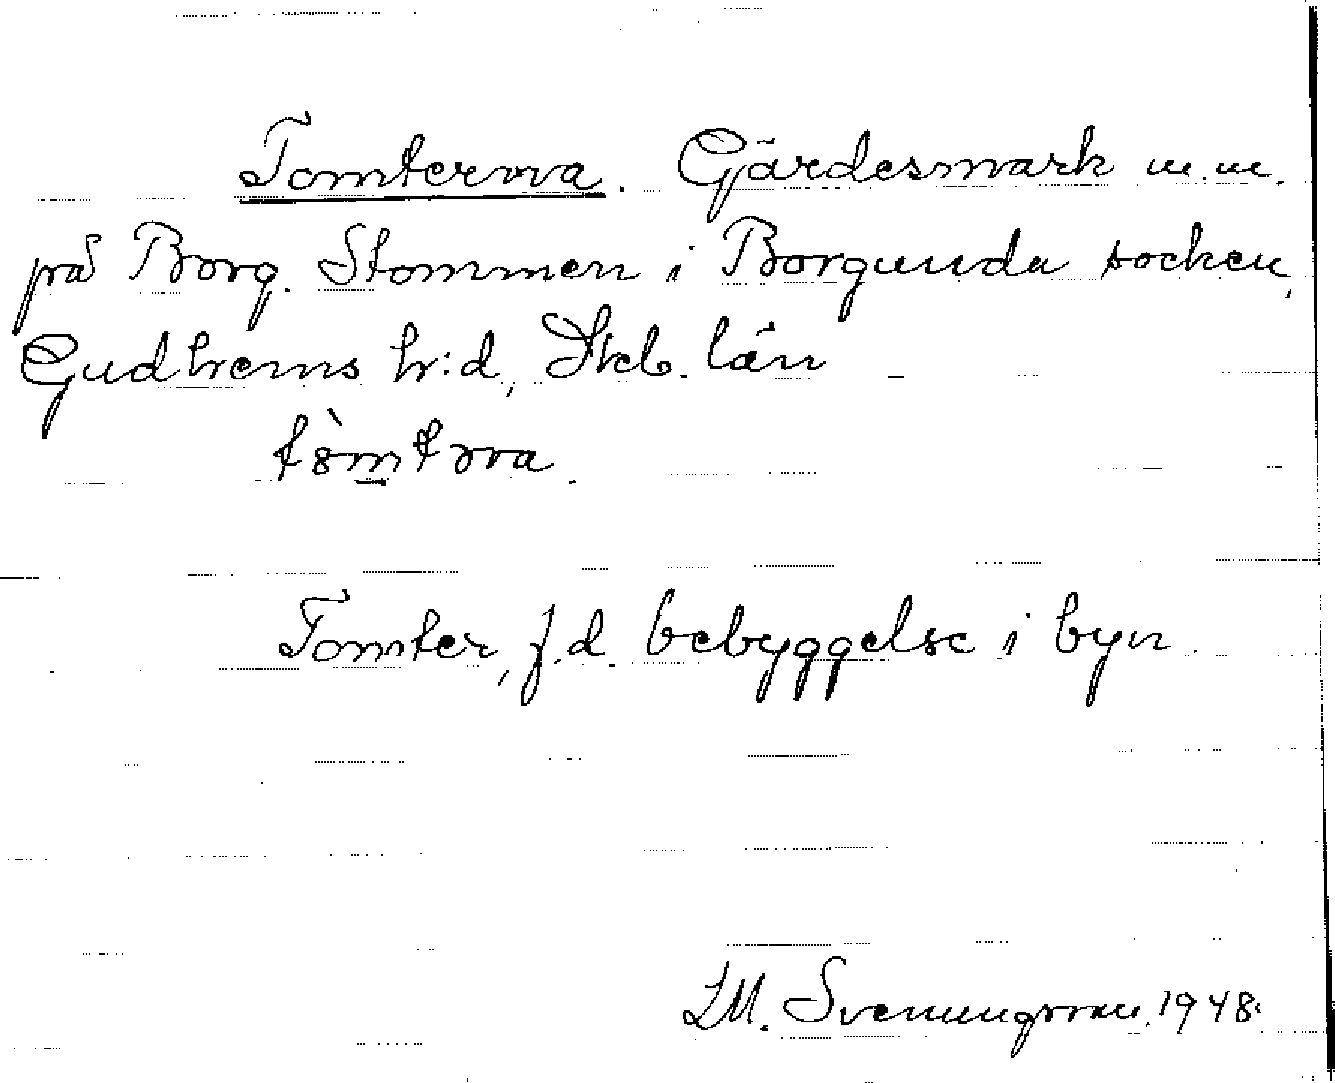 Tomterna. Gärdesmark m.m.
på Borg. Stommen i Borgunda socken,
Gudhems hr:d, Skb. län
Tomter, f.d. bebyggelse i byn.
S.M. Svenungsson. 1948.